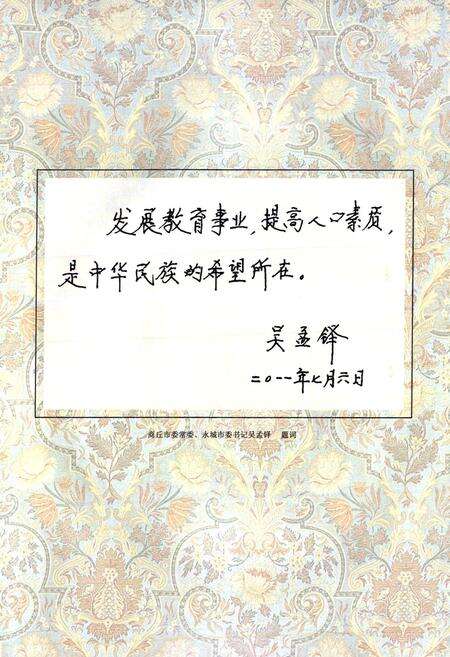 发展教育事业，提高人口素质，
是中华民族的希望所在。
吴孟铎
二〇一一年七月六日
商丘市委常委、永城市委书记吴孟铎 题词